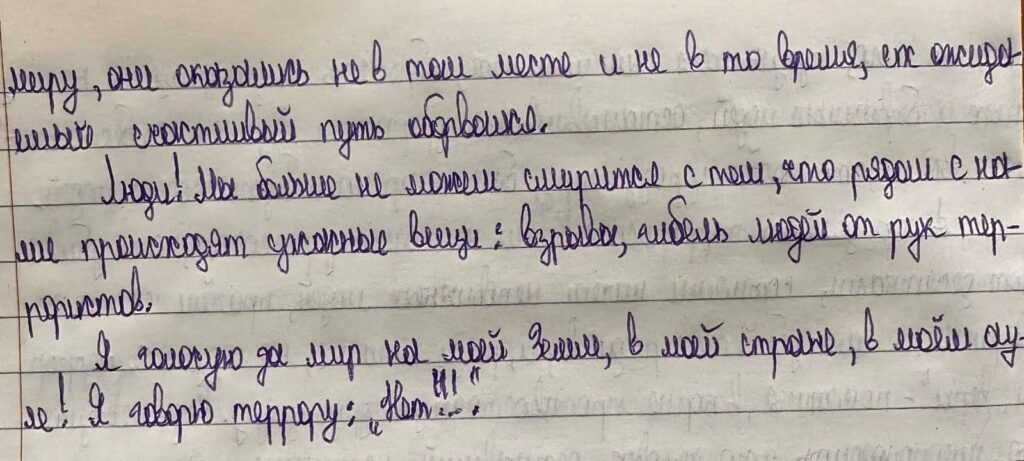 миру, они оказались не в том месте и не в то время, их ожида-
емый счастливый путь оборвался.
Люди! Мы больше не можем смирится с тем, что рядом с на-
ми происходят ужасные вещи: взрывы, гибель людей от рук тер-
рористов.
Я голосую за мир на моей Земли, в моей стране, в моём ау-
ле! Я говорю террору: „Нет!!!..."